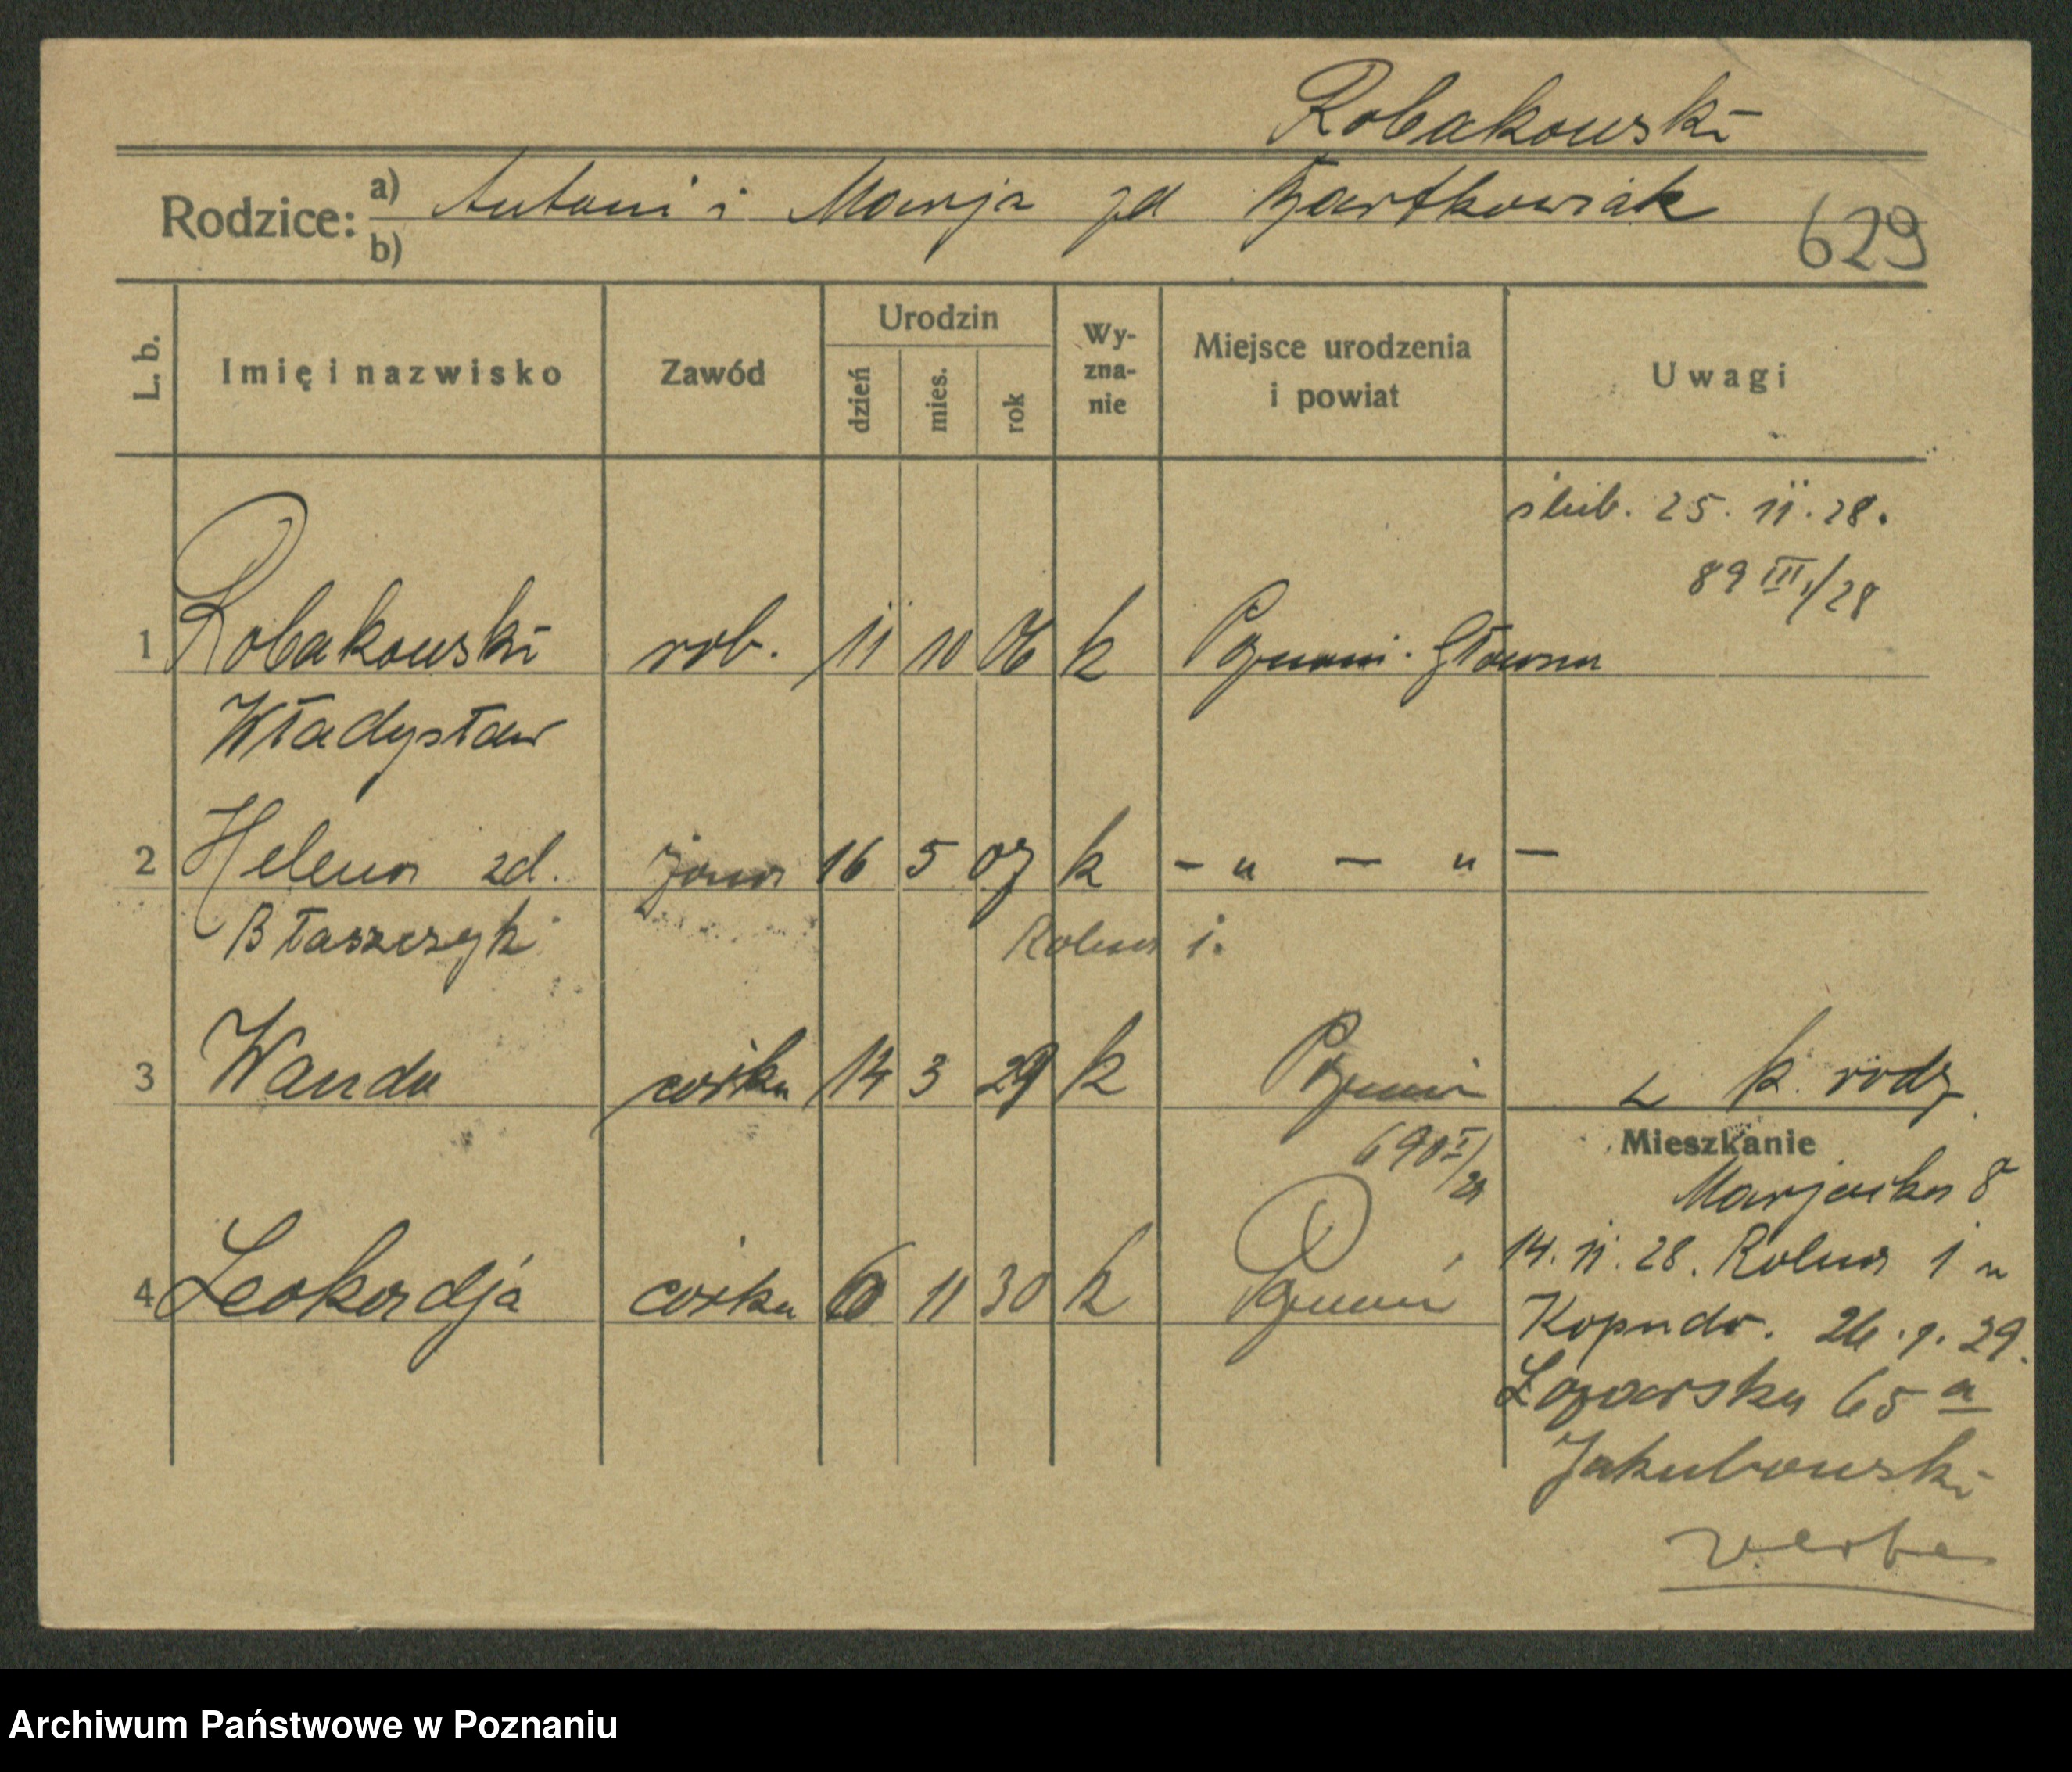 Robakowski
Rodzice: a) Antoni i Marja zd Bartkowiak
b)
629
L. b.
Imię i nazwisko
Zawód
Urodzin
dzień
mies.
rok
Wy-
zna-
nie
Miejsce urodzenia
i powiat
Uwagi
ślub. 25. 11. 28.
89 III/28
1 Robakowski rob. 11 10 06 k Poznań-Główna
Władysław
2 Helena zd. żona 16 5 07 k - " - " -
Błaszczyk
Rolna 1.
3 Wanda córka 14 3 29 k Poznań
k rodz.
690 I/29
Mieszkanie
Marjacka 8
4 Leokardja córka 6 11 30 k Poznań
14. 11. 28. Rolna 1 u
26. 9. 29.
65 a
Jakubowski
verte
Archiwum Państwowe w Poznaniu